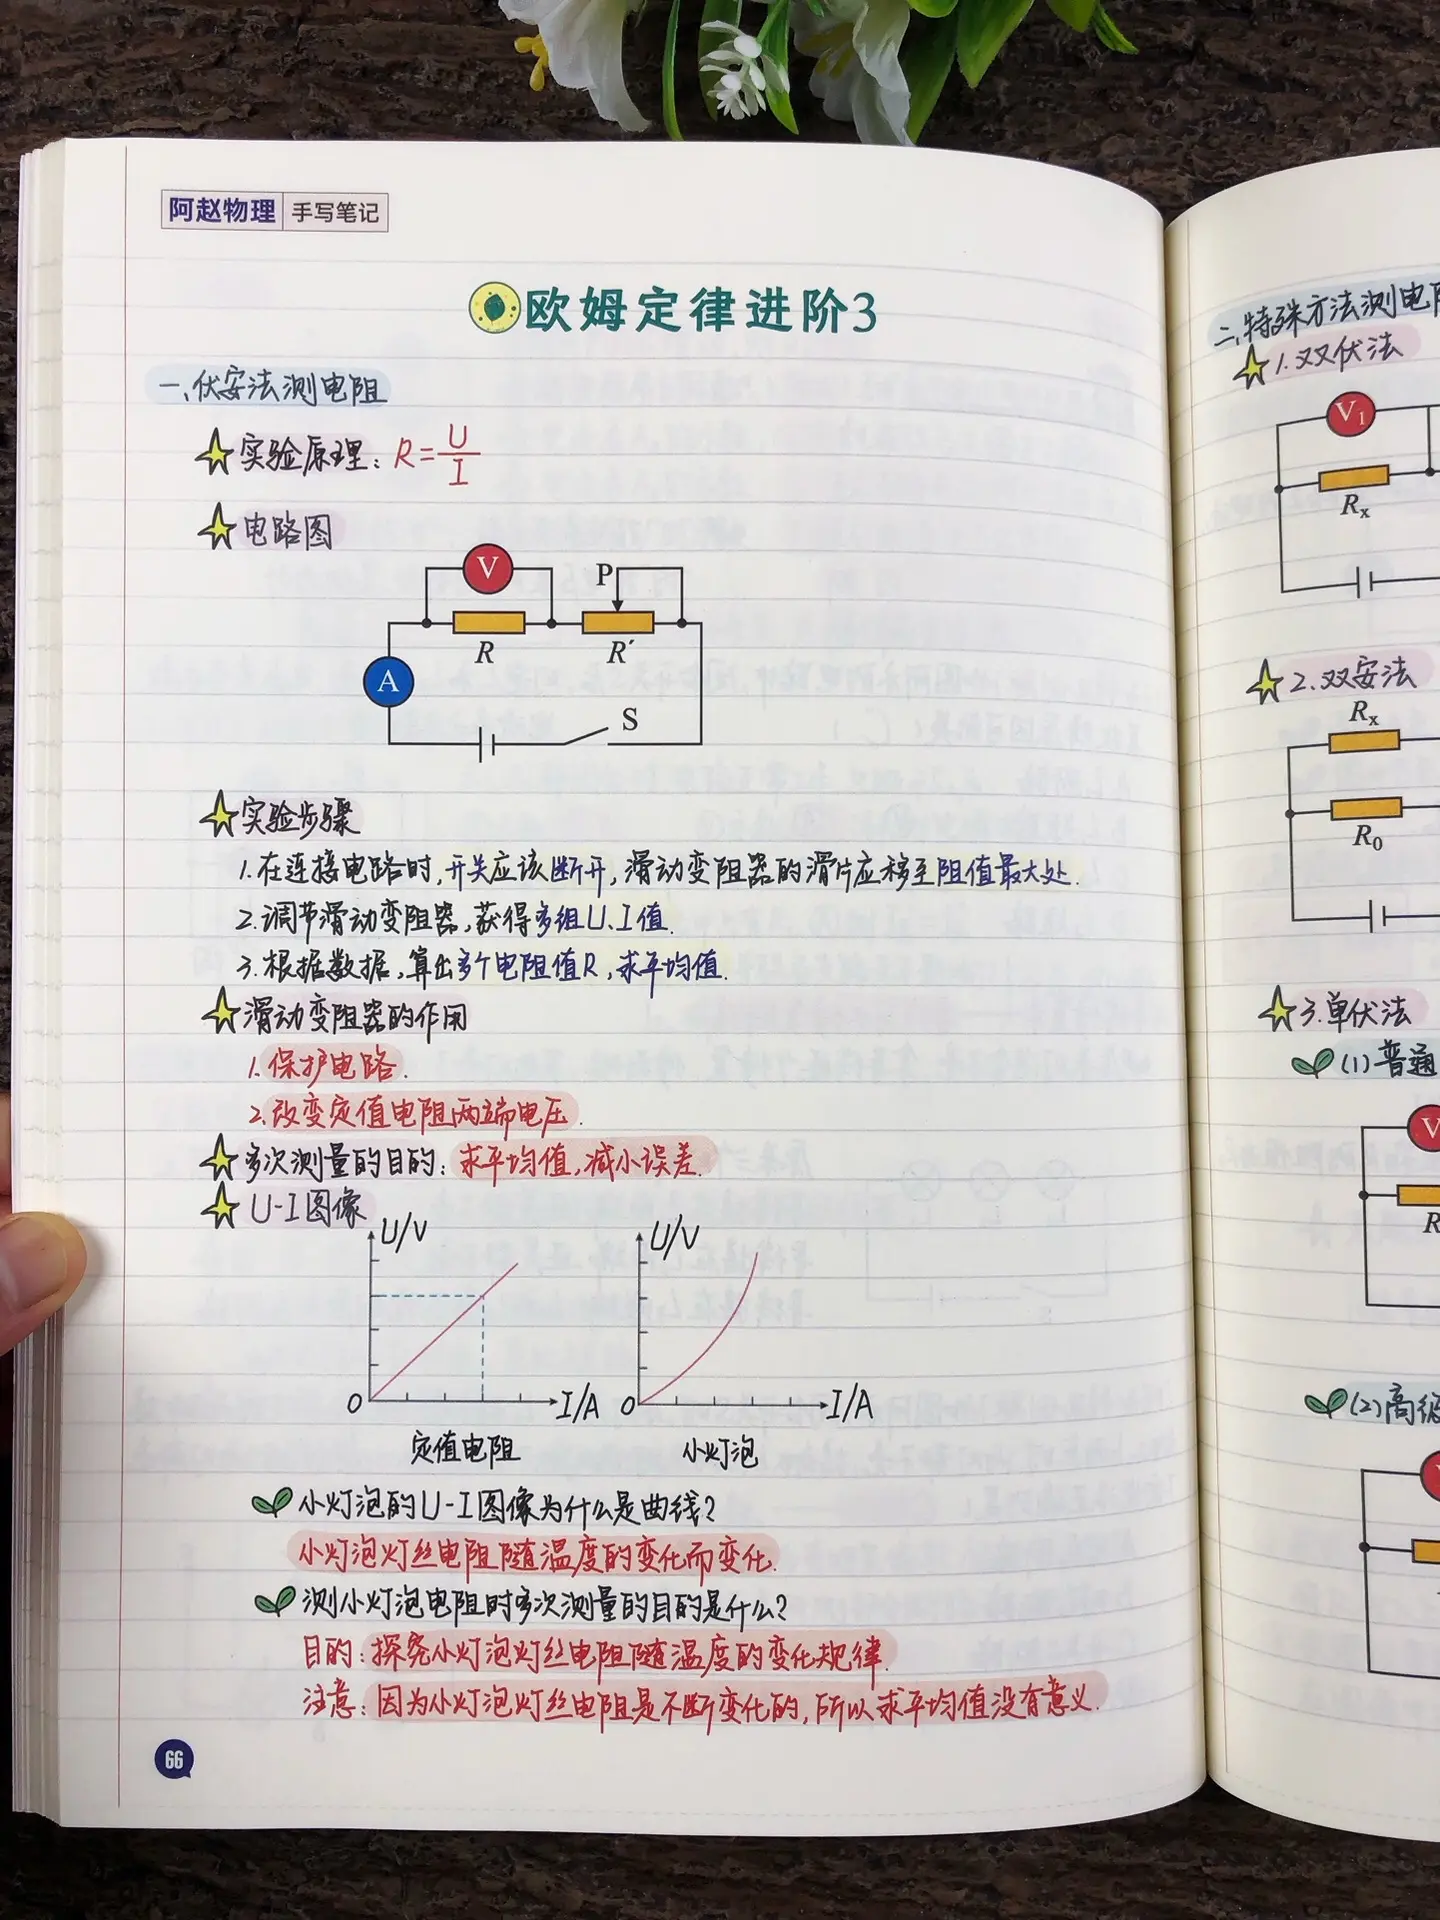 阿赵物理 手写笔记
欧姆定律进阶3
一、伏安法测电阻
实验原理：R=U/I
电路图
V
P
R
R′
A
S
实验步骤
1.在连接电路时,开关应该断开,滑动变阻器的滑片应移至阻值最大处.
2.调节滑动变阻器,获得多组U、I值.
3.根据数据,算出多个电阻值R,求平均值.
滑动变阻器的作用
1.保护电路.
2.改变定值电阻两端电压.
多次测量的目的：求平均值,减小误差.
U-I图像
U/V
U/V
O
I/A
O
I/A
定值电阻
小灯泡
小灯泡的U-I图像为什么是曲线?
小灯泡灯丝电阻随温度的变化而变化.
测小灯泡电阻时多次测量的目的是什么?
目的：探究小灯泡灯丝电阻随温度的变化规律.
注意：因为小灯泡灯丝电阻是不断变化的,所以求平均值没有意义.
66
二、特殊方法测电阻
1.双伏法
V1
Rx
2.双安法
Rx
R0
3.单伏法
(1)普通
V
R
(2)高级